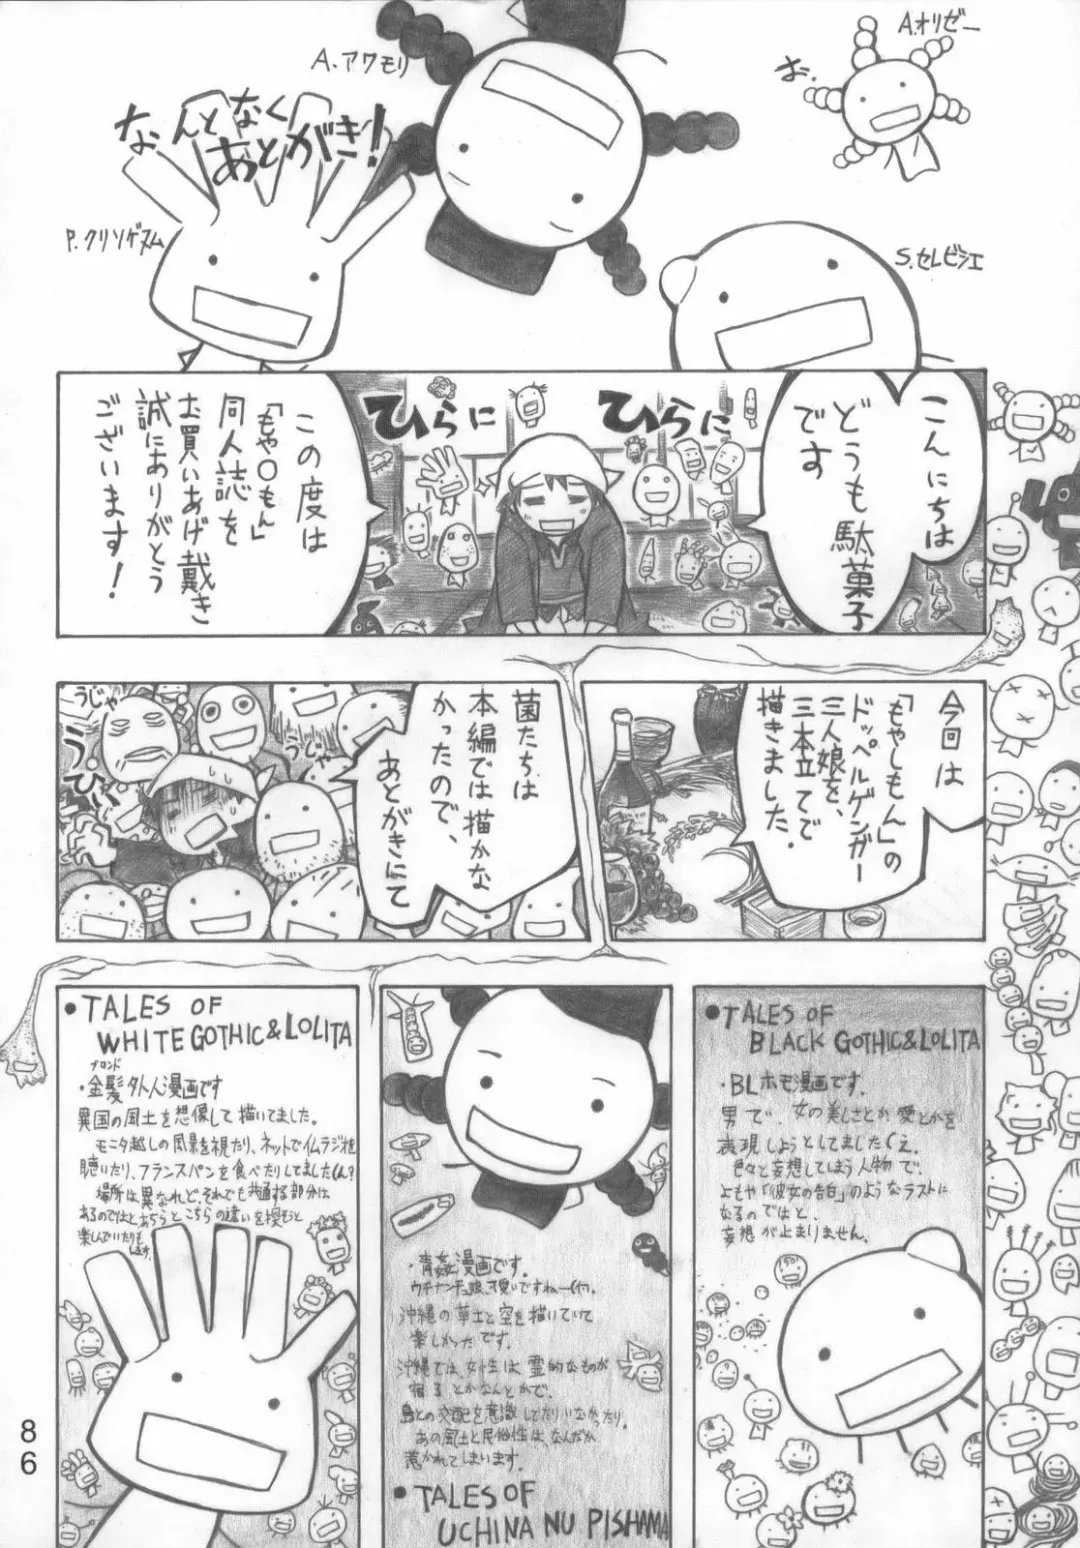 A.オリゼー
お.
A.アワモリ
なんとなく
あとがき!
P.クリソゲヌム
S.セレビシエ
こんにちは
どうも駄菓子
です
ひらに
ひらに
この度は
「もや〇もん」
同人誌を
お買いあげ戴き
誠にありがとう
ございます!
今回は
「もやしもん」の
ドッペルゲンガー
三人娘を、
三本立てで
描きました.
菌たちは
本編では描かな
かったので、
あとがきにて
うじゃ
うじゃ
うひぃ
•TALES OF
BLACK GOTHIC&LOLITA
・BLホモ漫画です.
男で、女の美しさとか愛とかを
表現しようとしてましたくえ.
色々と妄想してしまう人物で.
よもや「彼女の告白」のようなラストに
なるのではと.
妄想が止まりません.
・青姦漫画です.
ウチナンチュ娘、可愛いですねー
沖縄の草土と空を描いていて
楽しかったです.
沖縄では、女性は霊的なものが
宿るとかなんとかで.
島との交配を意識してたりしなかったり.
あの風土と民俗性は、なんだか
惹かれてしまいます.
•TALES OF
UCHINA NU PISHAMA
•TALES OF
WHITE GOTHIC&LOLITA
ブロンド
・金髪外人漫画です
異国の風土を想像して描いてました.
モニタ越しの風景を視たり、ネットでイムラジオを
聴いたり、フランスパンを食べたりしてました
場所は異なれど、それでも共通する部分は
あるのではとあちらとこちらの違いを探そうと
楽しんでいたりも
します.
86